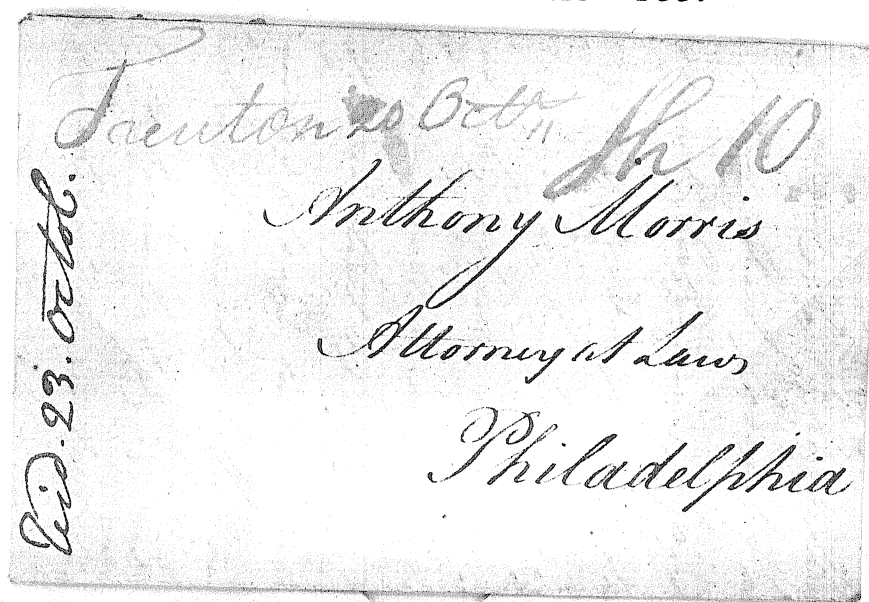 Trenton 20 Octr
Sh 10
Anthony Morris
Attorney at Law
Philadelphia
23. Octob.